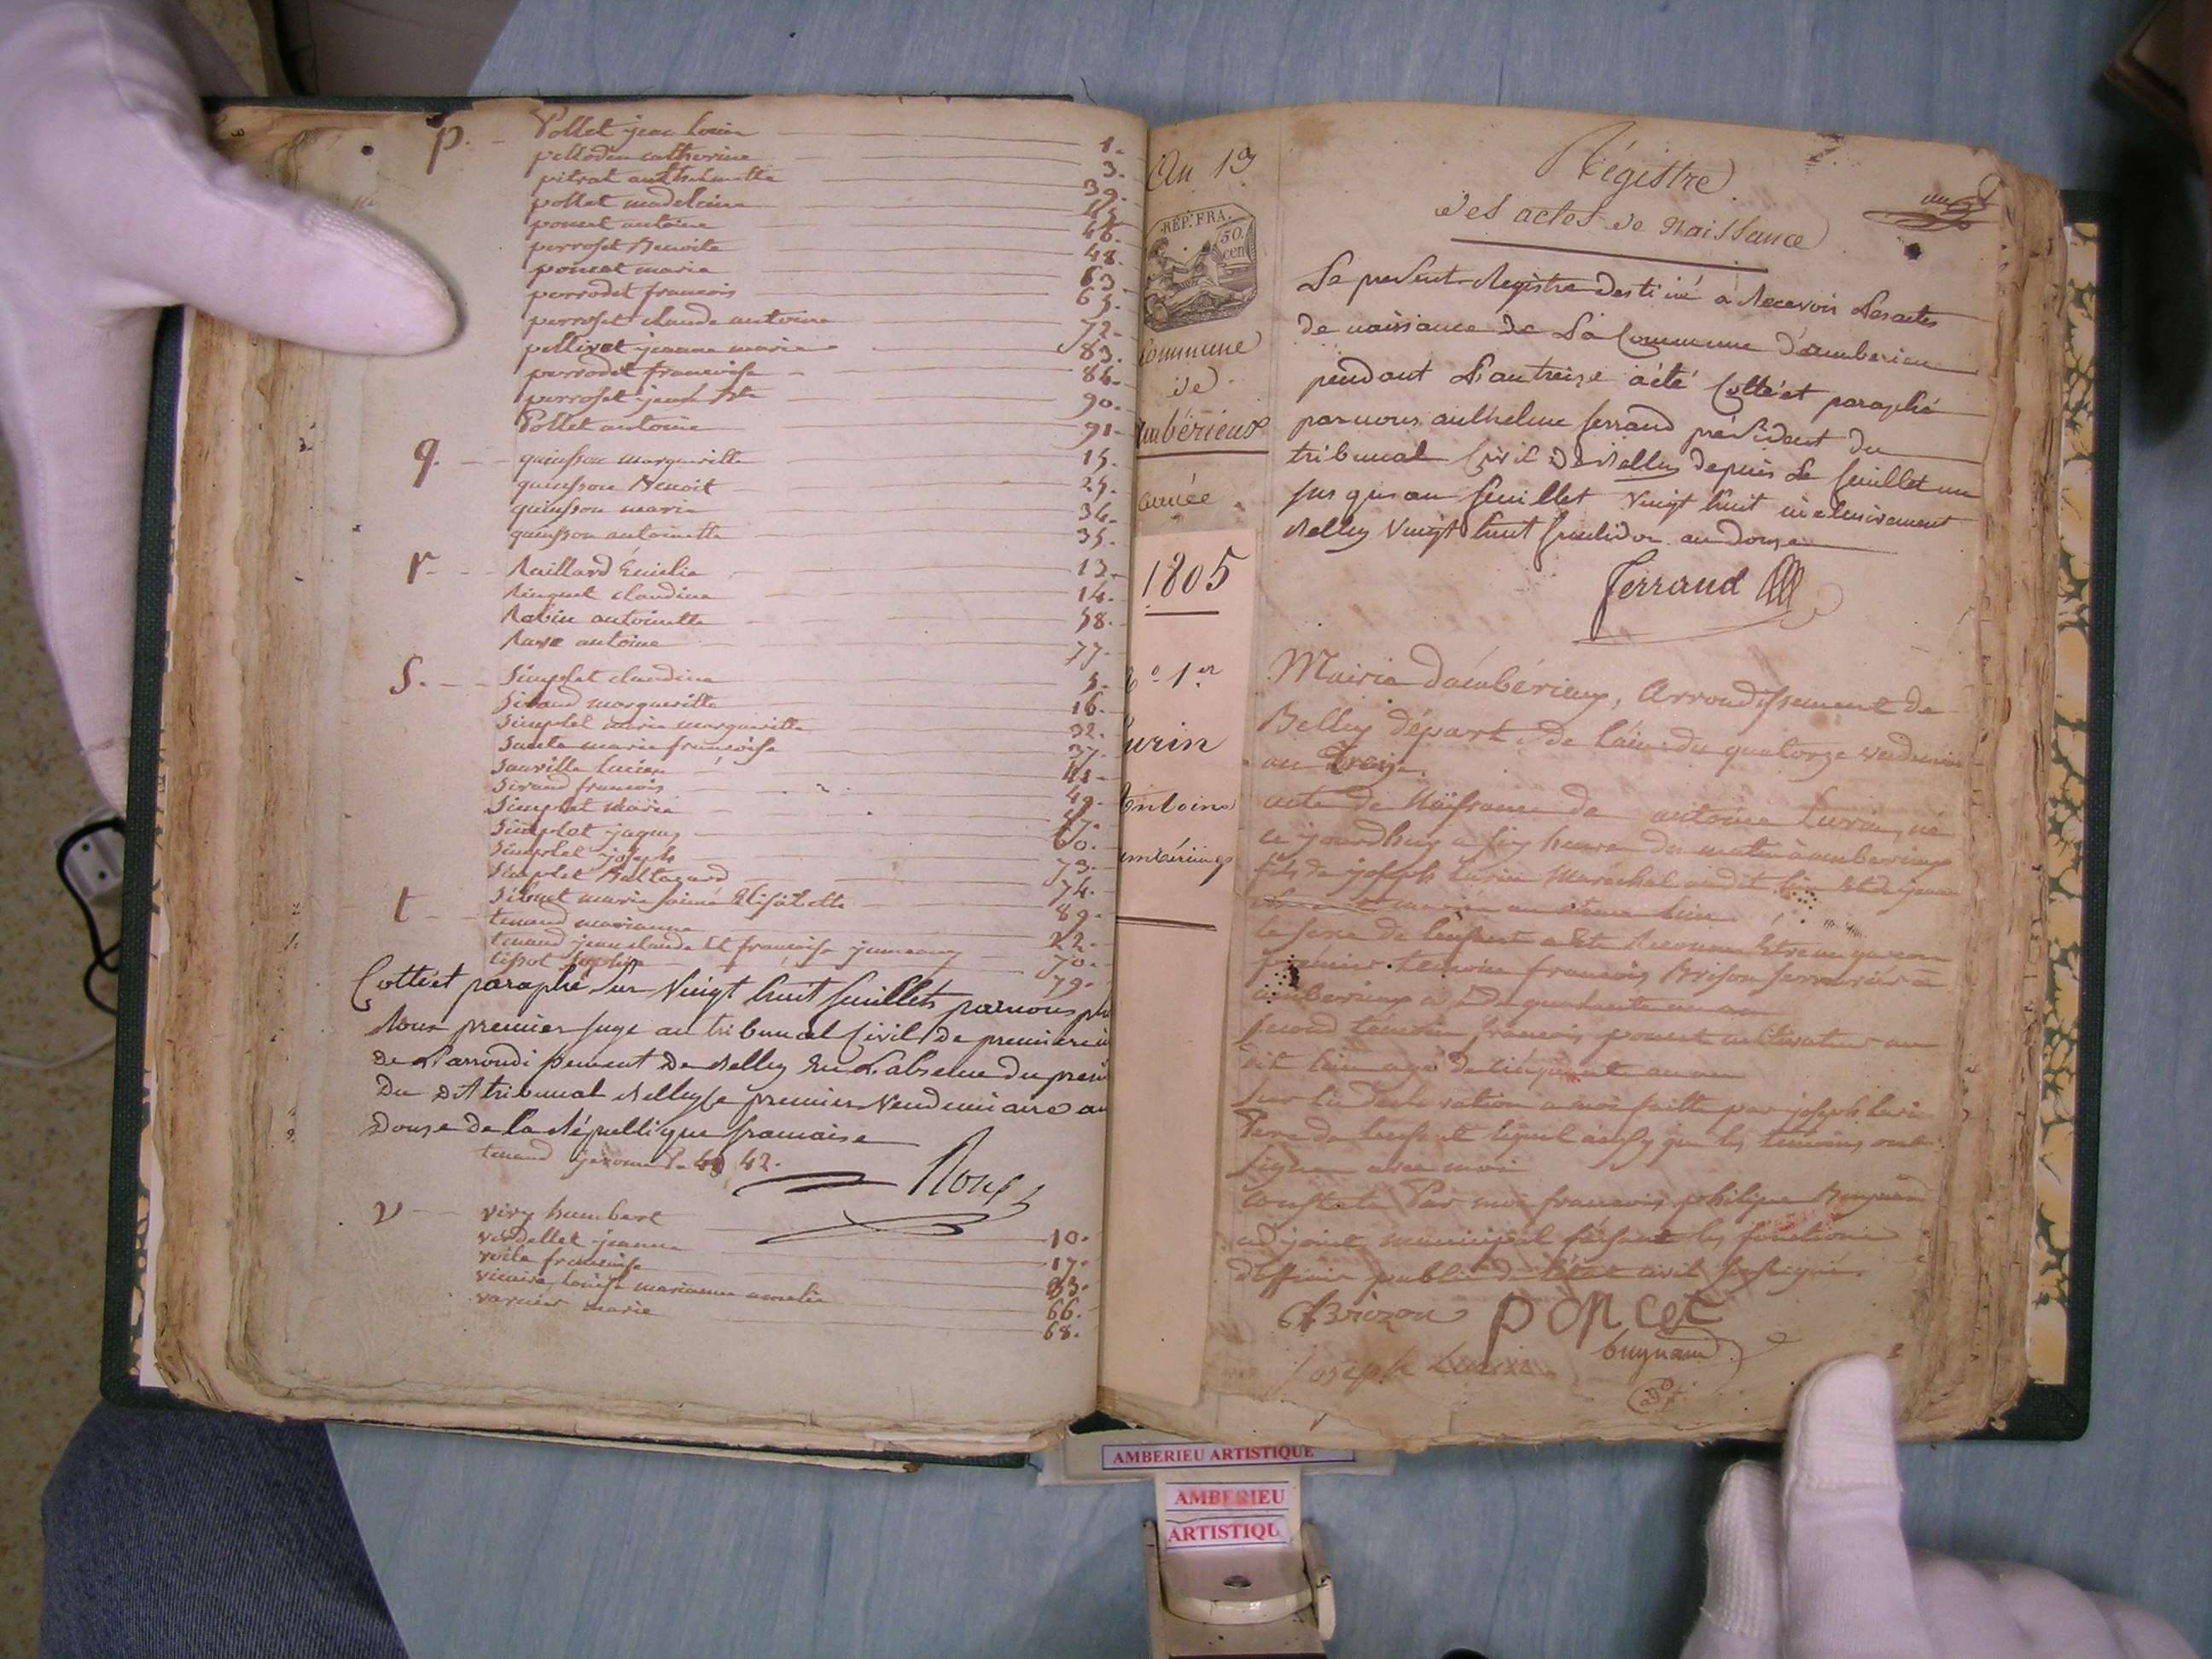 p. Pollet jean Louis 1.
pellodin catherine 3.
pitrat anthelmette 39.
pollet madeleine 45.
poncet antoine 46.
perroset Benoite 48.
poncet maria 63
perrodet francois 65.
perroset claude antoine 72.
pellivet jeanne marie 83.
perrodet francoise 86.
perroset jean Bte 90.
Pollet antoine 91.
q. quinsson margueritte 15.
quinsson Benoit 25.
quinsson marie 34.
quinsson antoinette 35.
r. Raillard Emelie 13.
claudine 14.
Robin antoinette 58.
antoine 77.
S. Simplet claudine 5.
Siraud margueritte 16.
Simplet marie margueritte 32.
marie francoise 37.
Lucien
Siraud francois 49.
Simplet marie
Simplet jaques 60.
Simplet joseph 73.
Simplet Baltazard 74.
marie Elisabette 89.
t tenand marianne 22.
tenand jean claude Et francoise jumeaux 70.
tissot Sophie 79.
Cotté et paraphé sur Vingt huit feuillets par nous
Roux premier juge au tribunal Civil de premiere
de L'arrondissement De Belley En L'absence du
Du Dit tribunal Belley le premier Vendemiaire an
Douze de la République francaise
tenand 42.
Roux
v viry humbert 10.
verdellet jeanne 17.
francoise
vicaire Louise marianne amelie 66.
varnier marie 68.
An 13
REP. FRA.
50.
cen
Commune
de
mbérieux
année
1805
N° 1er
urin
Antoine
mbérieux
Régistre
des actes de Naissance
Le present Registre destiné a Recevoir Les actes
de naissance de La Commune d'amberieu
pendant L'an treize a été Cotté et paraphé
par nous anthelme ferrand président du
tribunal Civil de Belley depuis Le feuillet un
jusqu'au feuillet Vingt huit inclusivement
Belley Vingt huit fructidor an douze
Ferrand
Mairie d'ambérieux, Arrondissement de
Belley départ. de l'ain du quatorze vendemiaire
an treize.
acte de Naissance de antoine Lurin, né
ce jourdhuy a six heures du matin a amberieux
fils de joseph Lurin Maréchal audit lieu Et de jeanne
le sexe de l'enfant a Eté Reconnu Etre un garcon
premier temoin francois Brison serrurier a
amberieux de quarante un an
second témoin francois poncet cultivateur au
dit lieu agé de cinquante un an
sur la declaration a moi faitte par joseph Lurin
Pere de l'enfant lequel ainsy que les temoins ont
signé avec moi
Constaté Par moi francois philippe Bugnand
adjoint municipal faisant les fonctions
d'officier public de l'état civil soussigné.
Brizon PONCET
bugnand
Joseph Lurin
AMBERIEU ARTISTIQUE
AMBERIEU
ARTISTIQU